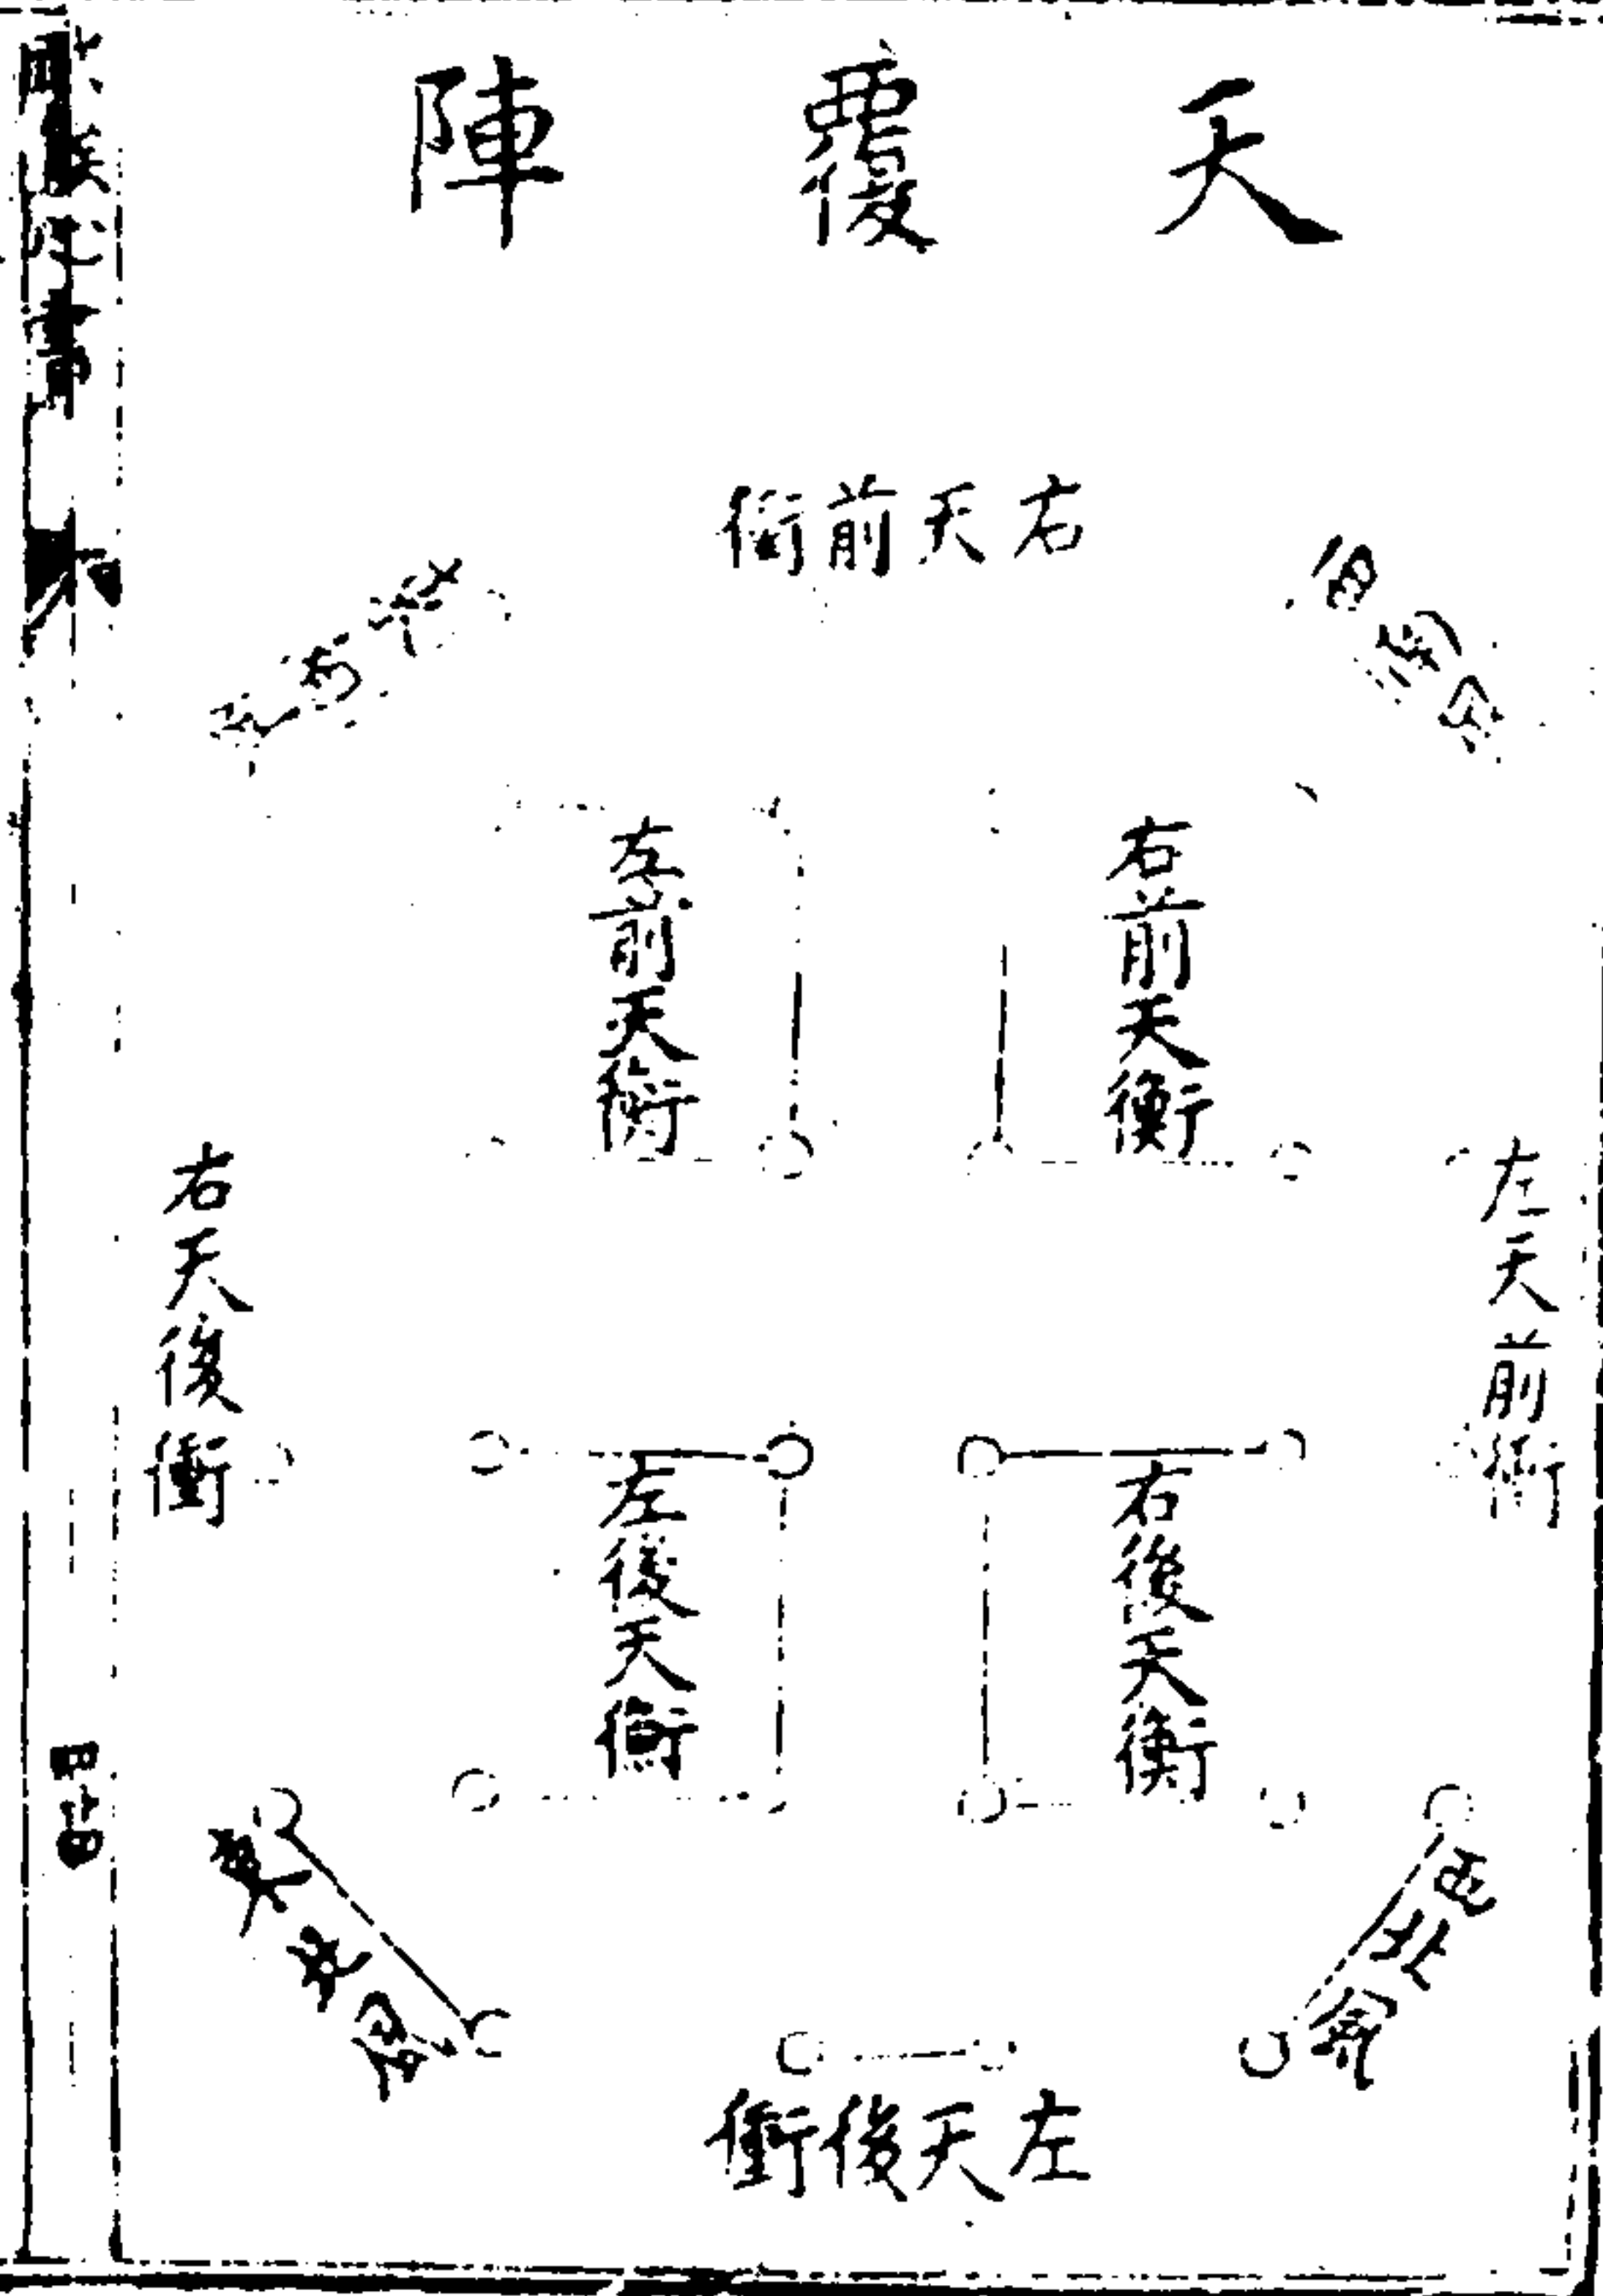 天覆陣
右天前衝
右前天衡
左前天衡
左天前衝
右天後衝
右後天衡
左後天衡
西北
左天後衝